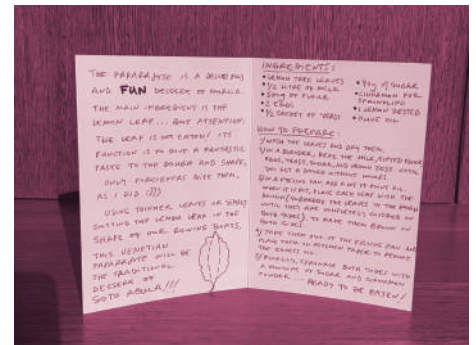 THE PAPARAJOTE IS A DELICIOUS
AND FUN DESSERT OF MURCIA.
THE MAIN INGREDIENT IS THE
LEMON LEAF... BUT ATTENTION:
THE LEAF IS NOT EATEN! ITS
FUNCTION IS TO GIVE A FANTASTIC
TASTE TO THE DOUGH AND SHAPE.
ONLY FOREIGNERS BITE THEM,
AS I DID :)))
USING THINNER LEAVES OR SIMPLY
CUTTING THE LEMON LEAF IN THE
SHAPE OF OUR ROWING BOATS,
THIS VENETIAN
PAPARAJOTE WILL BE
THE TRADITIONAL
DESSERT OF
SOTO AQUA!!!
INGREDIENTS:
• LEMON TREE LEAVES
• 1/2 LITRE OF MILK
• 500g OF FLOUR
• 2 EGGS
• 1/2 SACHET OF YEAST
• 40g OF SUGAR
• CINNAMON FOR
SPRINKLING
• 1 LEMON ZESTED
• OLIVE OIL
HOW TO PREPARE:
1/ WASH THE LEAVES AND DRY THEM.
2/ IN A BLENDER, BEAT THE MILK, SIFTED FLOUR,
EGGS, YEAST, SUGAR, AND LEMON ZEST UNTIL
YOU GET A DOUGH WITHOUT LUMPS.
3/ IN A FRYING PAN ADD A LOT OF OLIVE OIL.
WHEN IT IS HOT, PLACE EACH LEAF WITH THE
DOUGH (SUBMERGE THE LEAVES IN THE DOUGH
UNTIL THEY ARE COMPLETELY COVERED ON
BOTH SIDES) TO MAKE THEM BROWN ON
BOTH SIDES
4/ TAKE THEM OUT OF THE FRYING PAN AND
PLACE THEM ON KITCHEN PAPER TO REMOVE
THE EXCESS OIL
5/ FINALLY, SPRINKLE BOTH SIDES WITH
A MIXTURE OF SUGAR AND CINNAMON
POWDER... READY TO BE EATEN!